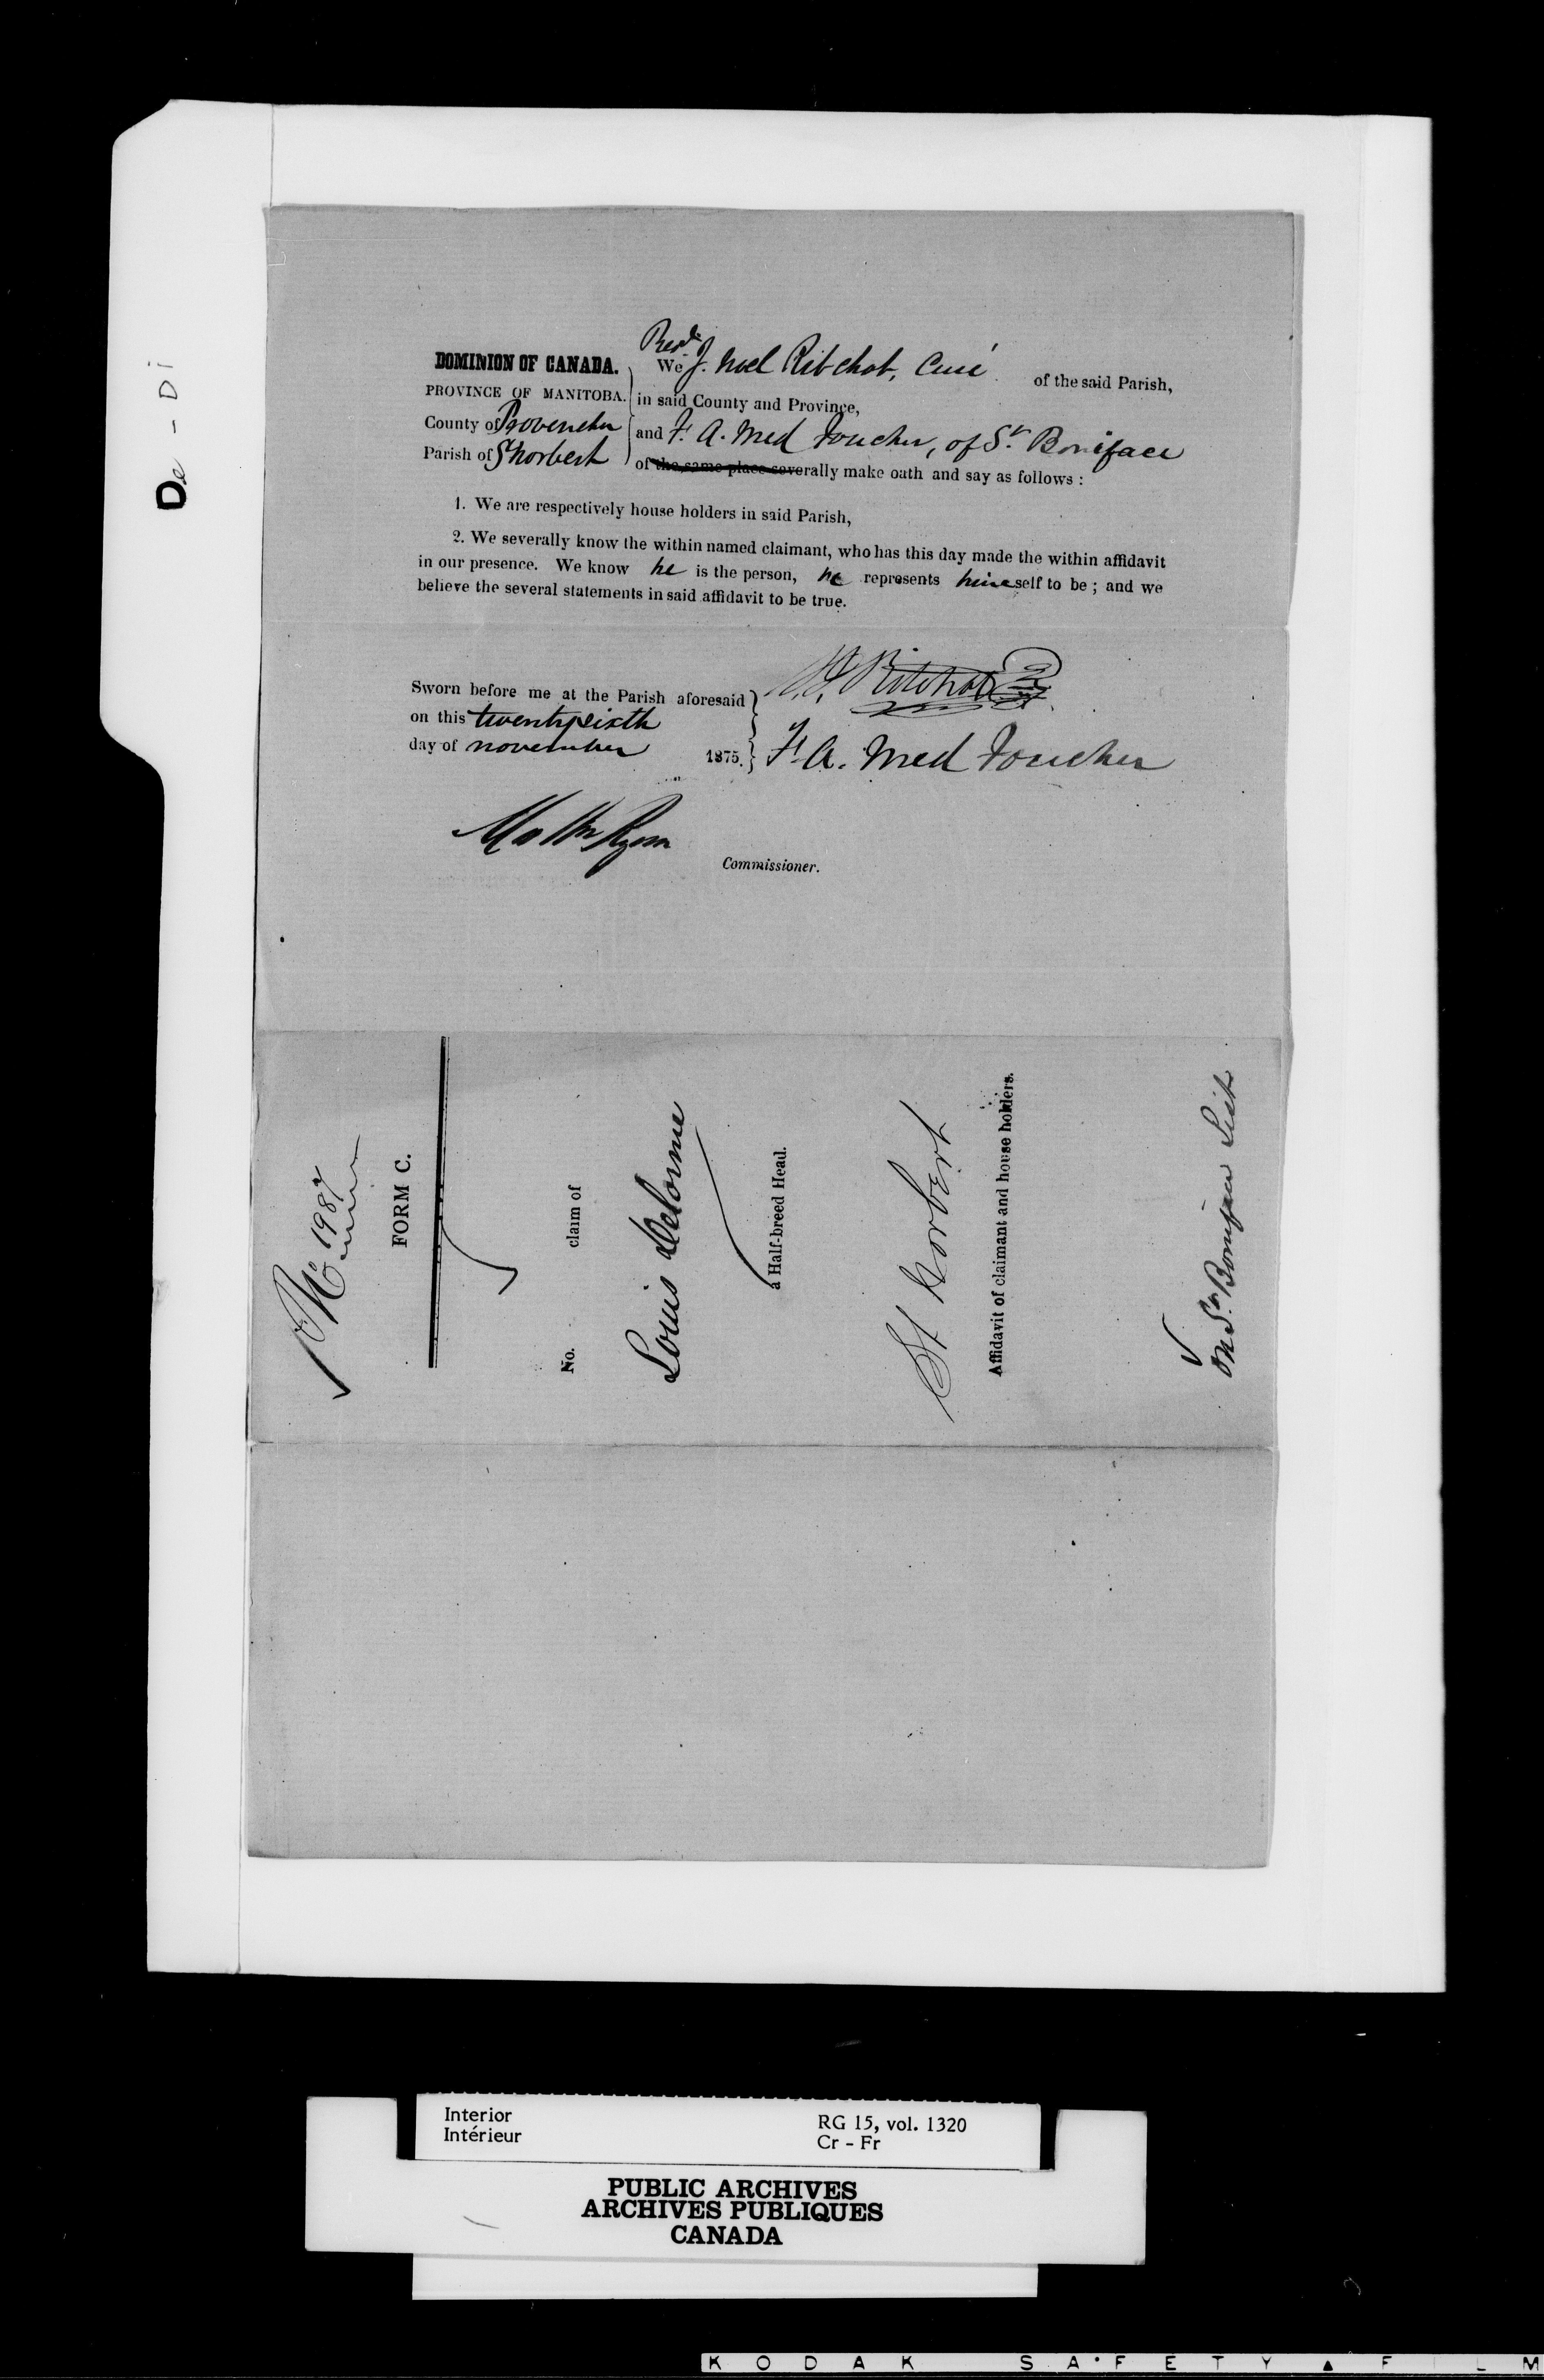 De - Di
DOMINION OF CANADA.
PROVINCE OF MANITOBA.
County of Provencher
Parish of St Norbert
Revd
We J. Noel Ritchot, Curé of the said Parish,
in said County and Province,
and F. A. Med Foucher, of St Boniface
of the same place severally make oath and say as follows :
1. We are respectively house holders in said Parish,
2. We severally know the within named claimant, who has this day made the within affidavit
in our presence. We know he is the person, he represents himself to be ; and we
believe the several statements in said affidavit to be true.
Sworn before me at the Parish aforesaid
on this twenty sixth
day of november 1875.
N. J. Ritchot Ptre
F. A. Med Foucher
Matthw Ryan
Commissioner.
No 1987
FORM C.
No. claim of
Louis Delorme
a Half-breed Head.
St Norbert
Affidavit of claimant and house holders.
On St. Boniface List
Interior
Intérieur
RG 15, vol. 1320
Cr - Fr
PUBLIC ARCHIVES
ARCHIVES PUBLIQUES
CANADA
KODAK SAFETY FILM